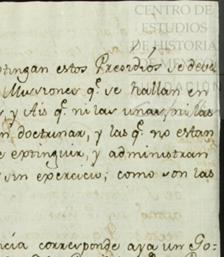 CENTRO DE
ESTUDIOS
DE HISTORIA
DE
xtingan estos Precidios se deve
Missiones q.e se hallan en
, y Ais q.e ni las unas, ni las
n doctrinar, y las q.e no estan
e extinguir, y administran
y sin exercicio; como son las
ncia corresponde aya un Go-